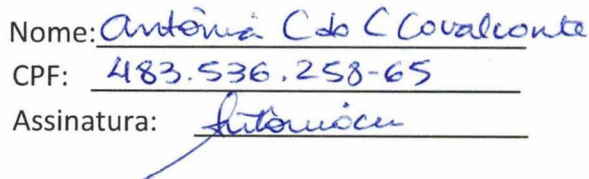 Nome: Antônia C do C Cavalcante
CPF: 483.536.258-65
Assinatura: Antônia